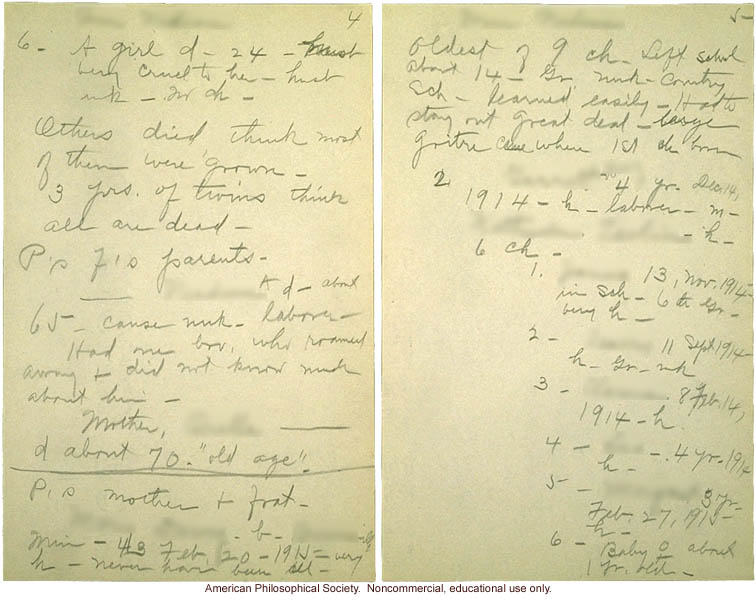 4
6 - A girl d - 24 - Husb
very cruel to her - husb
unk - no ch -
Others died think most
of them were grown -
3 prs. of twins think
all are dead -
P's f's parents -
d - about
65 - cause unk - laborer -
Had one bro. who roamed
away + did not know much
about him -
Mother,
d about 70 - "old age".
P's mother + frat -
- b -
Minn - 43 Feb. 20 - 1915 - very
h - never have been ill -
5 -
Oldest of 9 ch - Left school
about 14 - Gr. unk - Country
Sch - learned easily - Had to
stay out great deal - large
goitre came when 1st ch born
2
4 yr. Dec. 14,
1914 - h - laborer - m -
- h -
6 ch -
1. 13, Nov. 1914 -
in sch - 6th Gr -
very h -
2 - 11 Sept 1914
h - Gr - unk
3 - 8 Feb. 14,
1914 - h.
4 - - 4 yr - 1914
h -
5 - 3 yr -
Feb. 27, 1915 -
h -
6 - Baby ♀ about
1 yr. old -
American Philosophical Society. Noncommercial, educational use only.